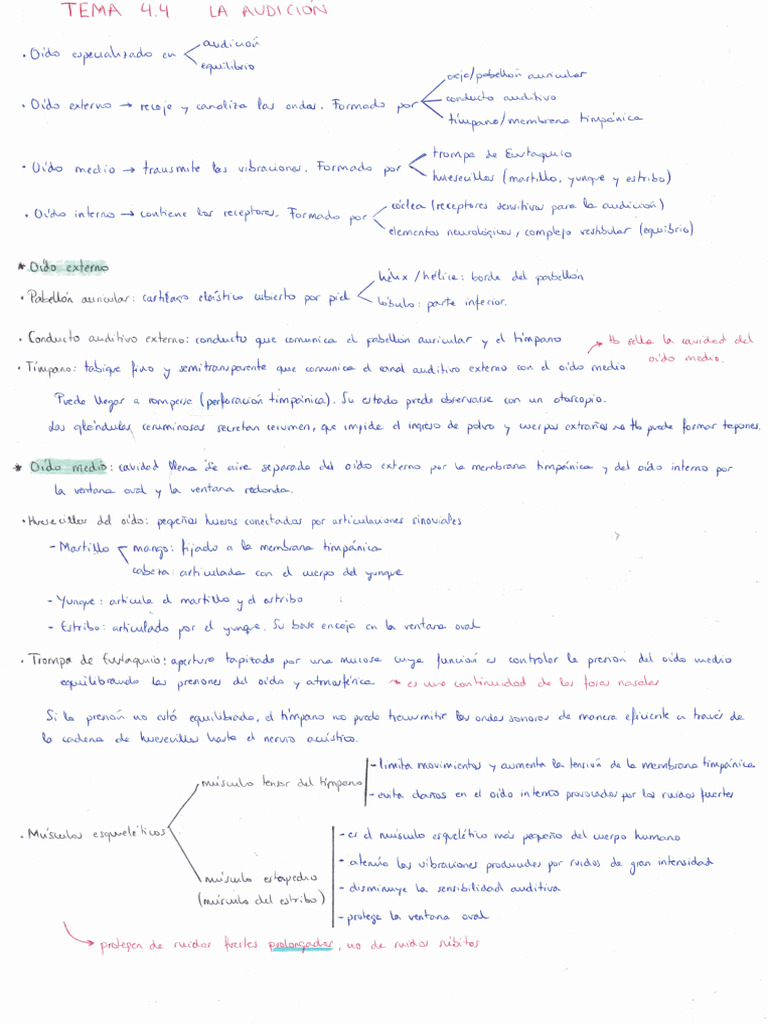 TEMA 4.4 LA AUDICIÓN
· Oído especializado en audición
equilibrio
· Oído externo → recoje y canaliza las ondas. Formado por oreja/pabellón auricular
conducto auditivo
tímpano/membrana timpánica
· Oído medio → transmite las vibraciones. Formado por trompa de Eustaquio
huesecillos (martillo, yunque y estribo)
· Oído interno → contiene los receptores. Formado por cóclea (receptores sensitivos para la audición)
elementos neurológicos, complejo vestibular (equilibrio)
* Oído externo
· Pabellón auricular: cartílago elástico cubierto por piel hélix/hélice: borde del pabellón
lóbulo: parte inferior.
· Conducto auditivo externo: conducto que comunica el pabellón auricular y el tímpano
→ tb sella la cavidad del oído medio.
· Tímpano: tabique fino y semitransparente que comunica el canal auditivo externo con el oído medio
Puede llegar a romperse (perforación timpánica). Su estado puede observarse con un otoscopio.
Las glándulas ceruminosas secretan cerumen, que impide el ingreso de polvo y cuerpos extraños → tb puede formar tapones.
* Oído medio: cavidad llena de aire separada del oído externo por la membrana timpánica y del oído interno por
la ventana oval y la ventana redonda.
· Huesecillos del oído: pequeños huesos conectados por articulaciones sinoviales
- Martillo mango: fijado a la membrana timpánica
cabeza: articulada con el cuerpo del yunque
- Yunque: articula el martillo y el estribo
- Estribo: articulado por el yunque. Su base encaja en la ventana oval
· Trompa de Eustaquio: apertura tapizada por una mucosa cuya función es controlar la presión del oído medio
equilibrando las presiones del oído y atmosférica → es una continuidad de las fosas nasales
Si la presión no está equilibrada, el tímpano no puede transmitir las ondas sonoras de manera eficiente a través de
la cadena de huesecillos hasta el nervio acústico.
· Músculos esqueléticos
músculo tensor del tímpano
- limita movimientos y aumenta la tensión de la membrana timpánica
- evita daños en el oído interno provocados por los ruidos fuertes
músculo estapedio
(músculo del estribo)
- es el músculo esquelético más pequeño del cuerpo humano
- atenúa las vibraciones producidas por ruidos de gran intensidad
- disminuye la sensibilidad auditiva
- protege la ventana oval
→ protegen de ruidos fuertes prolongados, no de ruidos súbitos